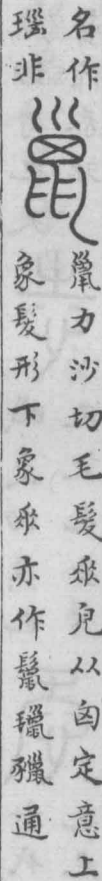 名作
瑙非
巤
巤力沙切毛髮乑皃从囟定意上
象髮形下象乑亦作鬣通